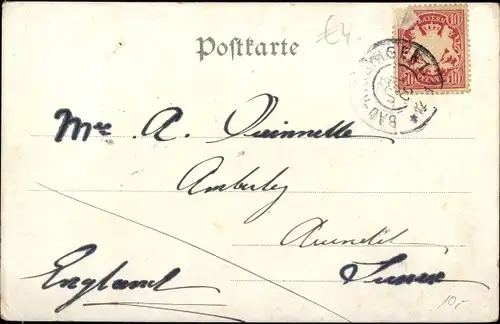 £4.
Postkarte
BAYERN
10 10
PFENNIG
BAD KISSINGEN
Mrs A. Quinnelle
Amberley
Arundel
England
Sussex
10,-